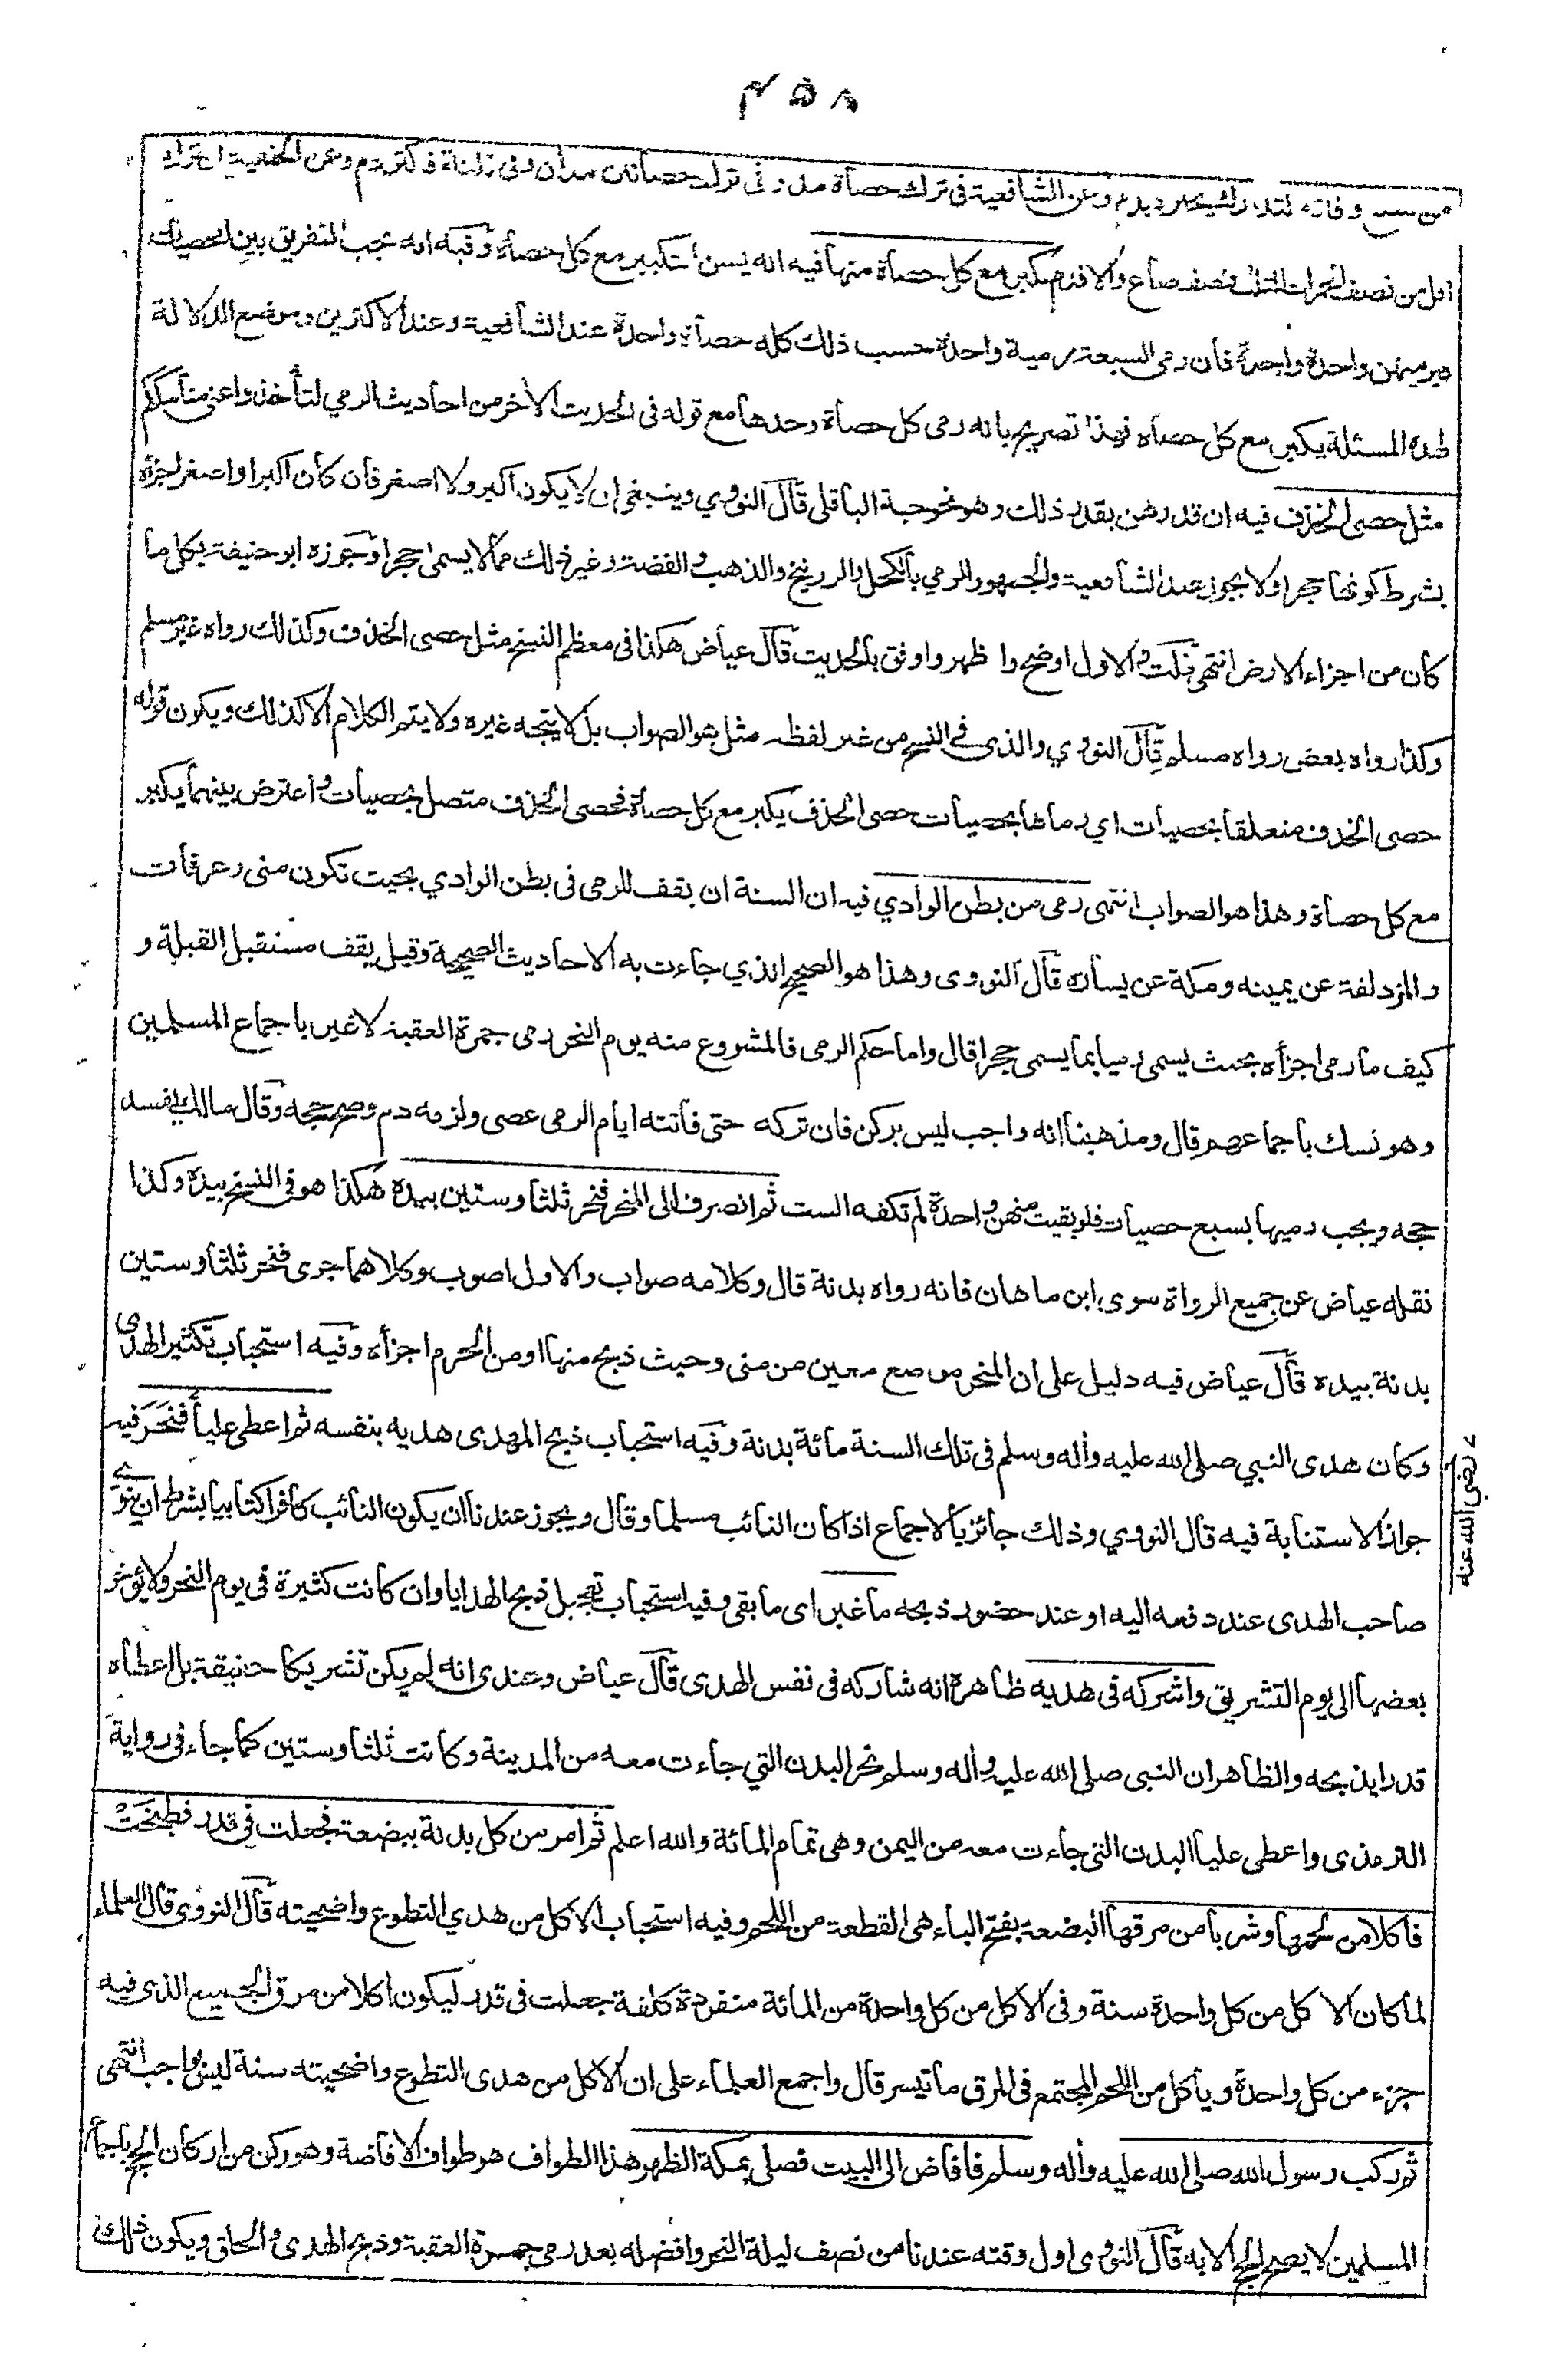 ٤٥٨
من سبع وفاته التدارك يجبر بدم وعن الشافعية فى ترك حصاة مد وفى ترك حصاتان مدان وفى ثلثة فاكثر دم وعن الحنفية ان ترك
اقل من نصف الجمرات الثلث فنصف صاع والا فدم يكبر مع كل حصاة منها فيه انه يسن التكبير مع كل حصاة وفيه انه يجب التفريق بين الحصيات
فيرميهن واحدة واحدة فان رمى السبعة رمية واحدة حسب ذلك كله حصاة واحدة عند الشافعية وعند الاكثرين وموضع الدلالة
لهذه المسئلة يكبر مع كل حصاة فهذا تصريح بانه رمى كل حصاة وحدها مع قوله فى الحديث الأخر من احاديث الرمي لتأخذوا عنى مناسككم
مثل حصى الخذف فيه ان قدرهن بقدر ذلك وهو نحو حبة الباقلى قال النووي وينبغى ان لا يكون اكبر ولا اصغر فان كان اكبر او اصغر اجزأه
بشرط كونها حجرا ولا يجوز عند الشافعية والجمهور الرمي بالكحل والزرنيخ والذهب والفضة وغير ذلك مما لا يسمى حجرا وجوزه ابو حنيفة بكل ما
كان من اجزاء الارض انتهى قلت والاول اوضح واظهر واوفق بالحديث قال عياض هكذا فى معظم النسخ مثل حصى الخذف وكذلك رواه غير مسلم
وكذا رواه بعض رواه مسلم قال النووي والذى فى النسخ من غير لفظه مثل هو الصواب بل لا يتجه غيره ولا يتم الكلام الا كذلك ويكون قوله
حصى الخذف متعلقا بحصيات اي رماها بحصيات حصى الخذف يكبر مع كل حصاة فحصى الخذف متصل بحصيات واعترض بينهما يكبر
مع كل حصاة وهذا هو الصواب انتهى رمى من بطن الوادي فيه ان السنة ان يقف للرمى فى بطن الوادي بحيث تكون منى وعرفات
والمزدلفة عن يمينه ومكة عن يساره قال النووى وهذا هو الصحيح الذي جاءت به الاحاديث الصحيحة وقيل يقف مستقبل القبلة و
كيف ما رمى اجزأه بحيث يسمى رميا بما يسمى حجرا قال واما حكم الرمى فالمشروع منه يوم النحر رمى جمرة العقبة لا غير باجماع المسلمين
وهو نسك باجماعهم قال ومذهبنا انه واجب ليس بركن فان تركه حتى فاتته ايام الرمى عصى ولزمه دم وصح حجه وقال مالك يفسد
حجه ويجب رميها بسبع حصيات فلو بقيت منهن واحدة لم تكفه الست ثم انصرف الى المنحر فنحر ثلثا وستين بيده هكذا هو فى النسخ بيده وكذا
نقله عياض عن جميع الرواة سوى ابن ماهان فانه رواه بدنة قال وكلامه صواب والاول اصوب وكلاهما جرى فنحر ثلثا وستين
بدنة بيده قال عياض فيه دليل على ان المنحر موضع معين من منى وحيث ذبح منها او من الحرم اجزأه وفيه استحباب تكثير الهدى
وكان هدى النبي صلى الله عليه وأله وسلم فى تلك السنة مائة بدنة وفيه استحباب ذبح المهدى هديه بنفسه ثم اعطى عليا فَنَحَرَ فيه
رضى الله عنه
جواز الاستنابة فيه قال النووي وذلك جائز بالاجماع اذا كان النائب مسلما وقال ويجوز عندنا ان يكون النائب كافرا كتابيا بشرط ان ينوي
صاحب الهدى عند دفعه اليه او عند حضور ذبحه ما غبر اى ما بقى وفيه استحباب تعجيل ذبح الهدايا وان كانت كثيرة فى يوم النحر ولا يؤخر
بعضها الى يوم التشريق واشركه فى هديه ظاهره انه شاركه فى نفس الهدى قال عياض وعندى انه لم يكن تشريكا حقيقة بل اعطاه
قدرا يذبحه والظاهر ان النبى صلى الله عليه وأله وسلم نحر البدن التي جاءت معه من المدينة وكانت ثلثا وستين كما جاء فى رواية
الترمذى واعطى عليا البدن التى جاءت معه من اليمن وهى تمام المائة والله اعلم ثم امر من كل بدنة ببضعة فجعلت فى قدر فطبخت
فاكلا من لحمها وشربا من مرقها البضعة بفتح الباء هى القطعة من اللحم وفيه استحباب الاكل من هدي التطوع واضحيته قال النووى قال العلماء
لما كان الاكل من كل واحدة سنة وفى الاكل من كل واحدة من المائة منفردة كلفة جعلت فى قدر ليكون أكلا من مرق الجميع الذى فيه
جزء من كل واحدة ويأكل من اللحم المجتمع فى المرق ما تيسر قال واجمع العلماء على ان الاكل من هدى التطوع واضحيته سنة ليس بواجب انتهى
ثم ركب رسول الله صلى الله عليه وأله وسلم فأفاض الى البيت فصلى بمكة الظهر هذا الطواف هو طواف الافاضة وهو ركن من اركان الحج باجماع
المسلمين لا يصح الحج الا به قال النووى اول وقته عندنا من نصف ليلة النحر وافضله بعد رمي جمرة العقبة وذبح الهدى والحلق ويكون ذلك